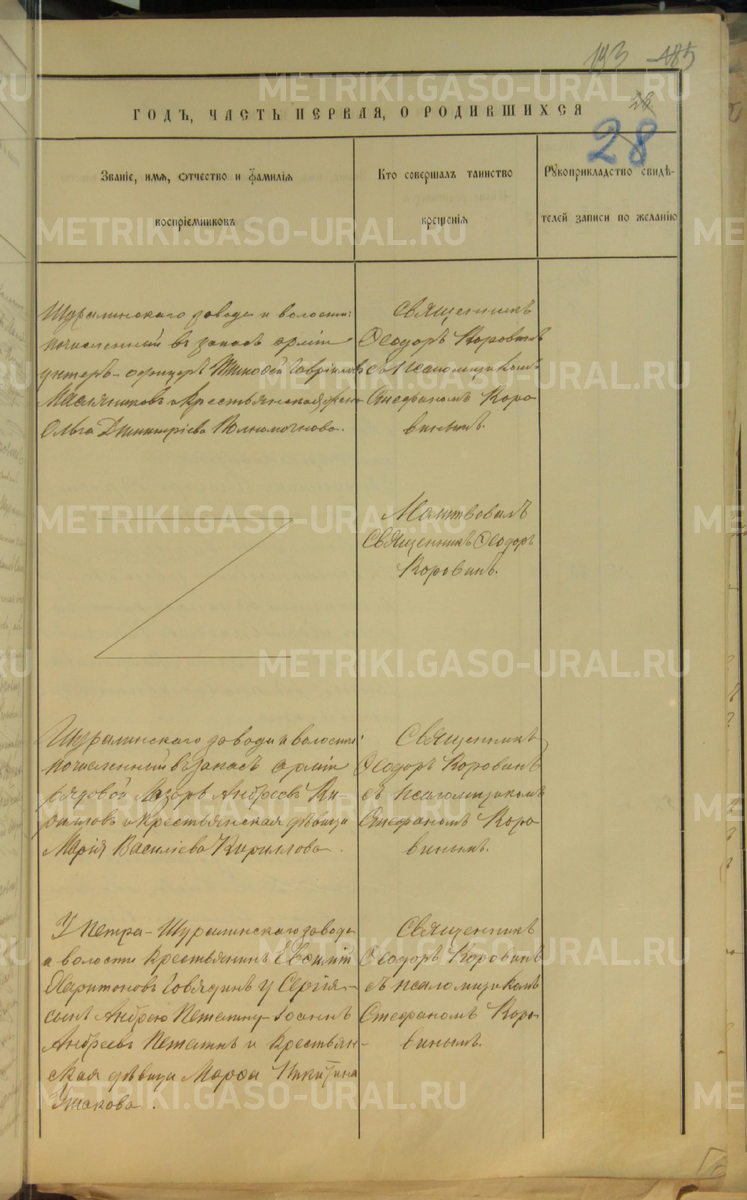 193 485
28
ГОДЪ, ЧАСТЬ ПЕРВАЯ, О РОДИВШИХСЯ
28
Званіе, имя, отчество и фамилія
воспріемниковъ
Кто совершалъ таинство
крещенія
Рукоприкладство свидѣ-
телей записи по желанію
Шуралинскаго завода и волости:
почисленный въ запасъ арміи
унтеръ-офицеръ Тимофей Гавріиловъ
и крестьянская
Ольга Димитріева
Священникъ
Ѳеодоръ Коровинъ
съ псаломщикомъ
Стефаномъ Коро
винымъ.
Молитвовалъ
Священникъ Ѳеодоръ
Коровинъ.
Шуралинскаго завода и волости:
почисленный въ запасъ арміи
рядовой Лазарь Андреевъ Ки-
риловъ и крестьянская дѣвица
Марія Василіева Кириллова.
Священникъ
Ѳеодоръ Коровинъ
съ псаломщикомъ
Стефаномъ Коро
винымъ.
У Петра - Шуралинскаго завода
и волости крестьянинъ Евѳимій
Харитоновъ Говядинъ у Сергія -
сынъ Іоаннъ
Андреевъ и крестьян-
ская дѣвица Марѳа Никитина
Ушакова.
Священникъ
Ѳеодоръ Коровинъ
съ псаломщикомъ
Стефаномъ Коро-
винымъ.
METRIKI.GASO-URAL.RU